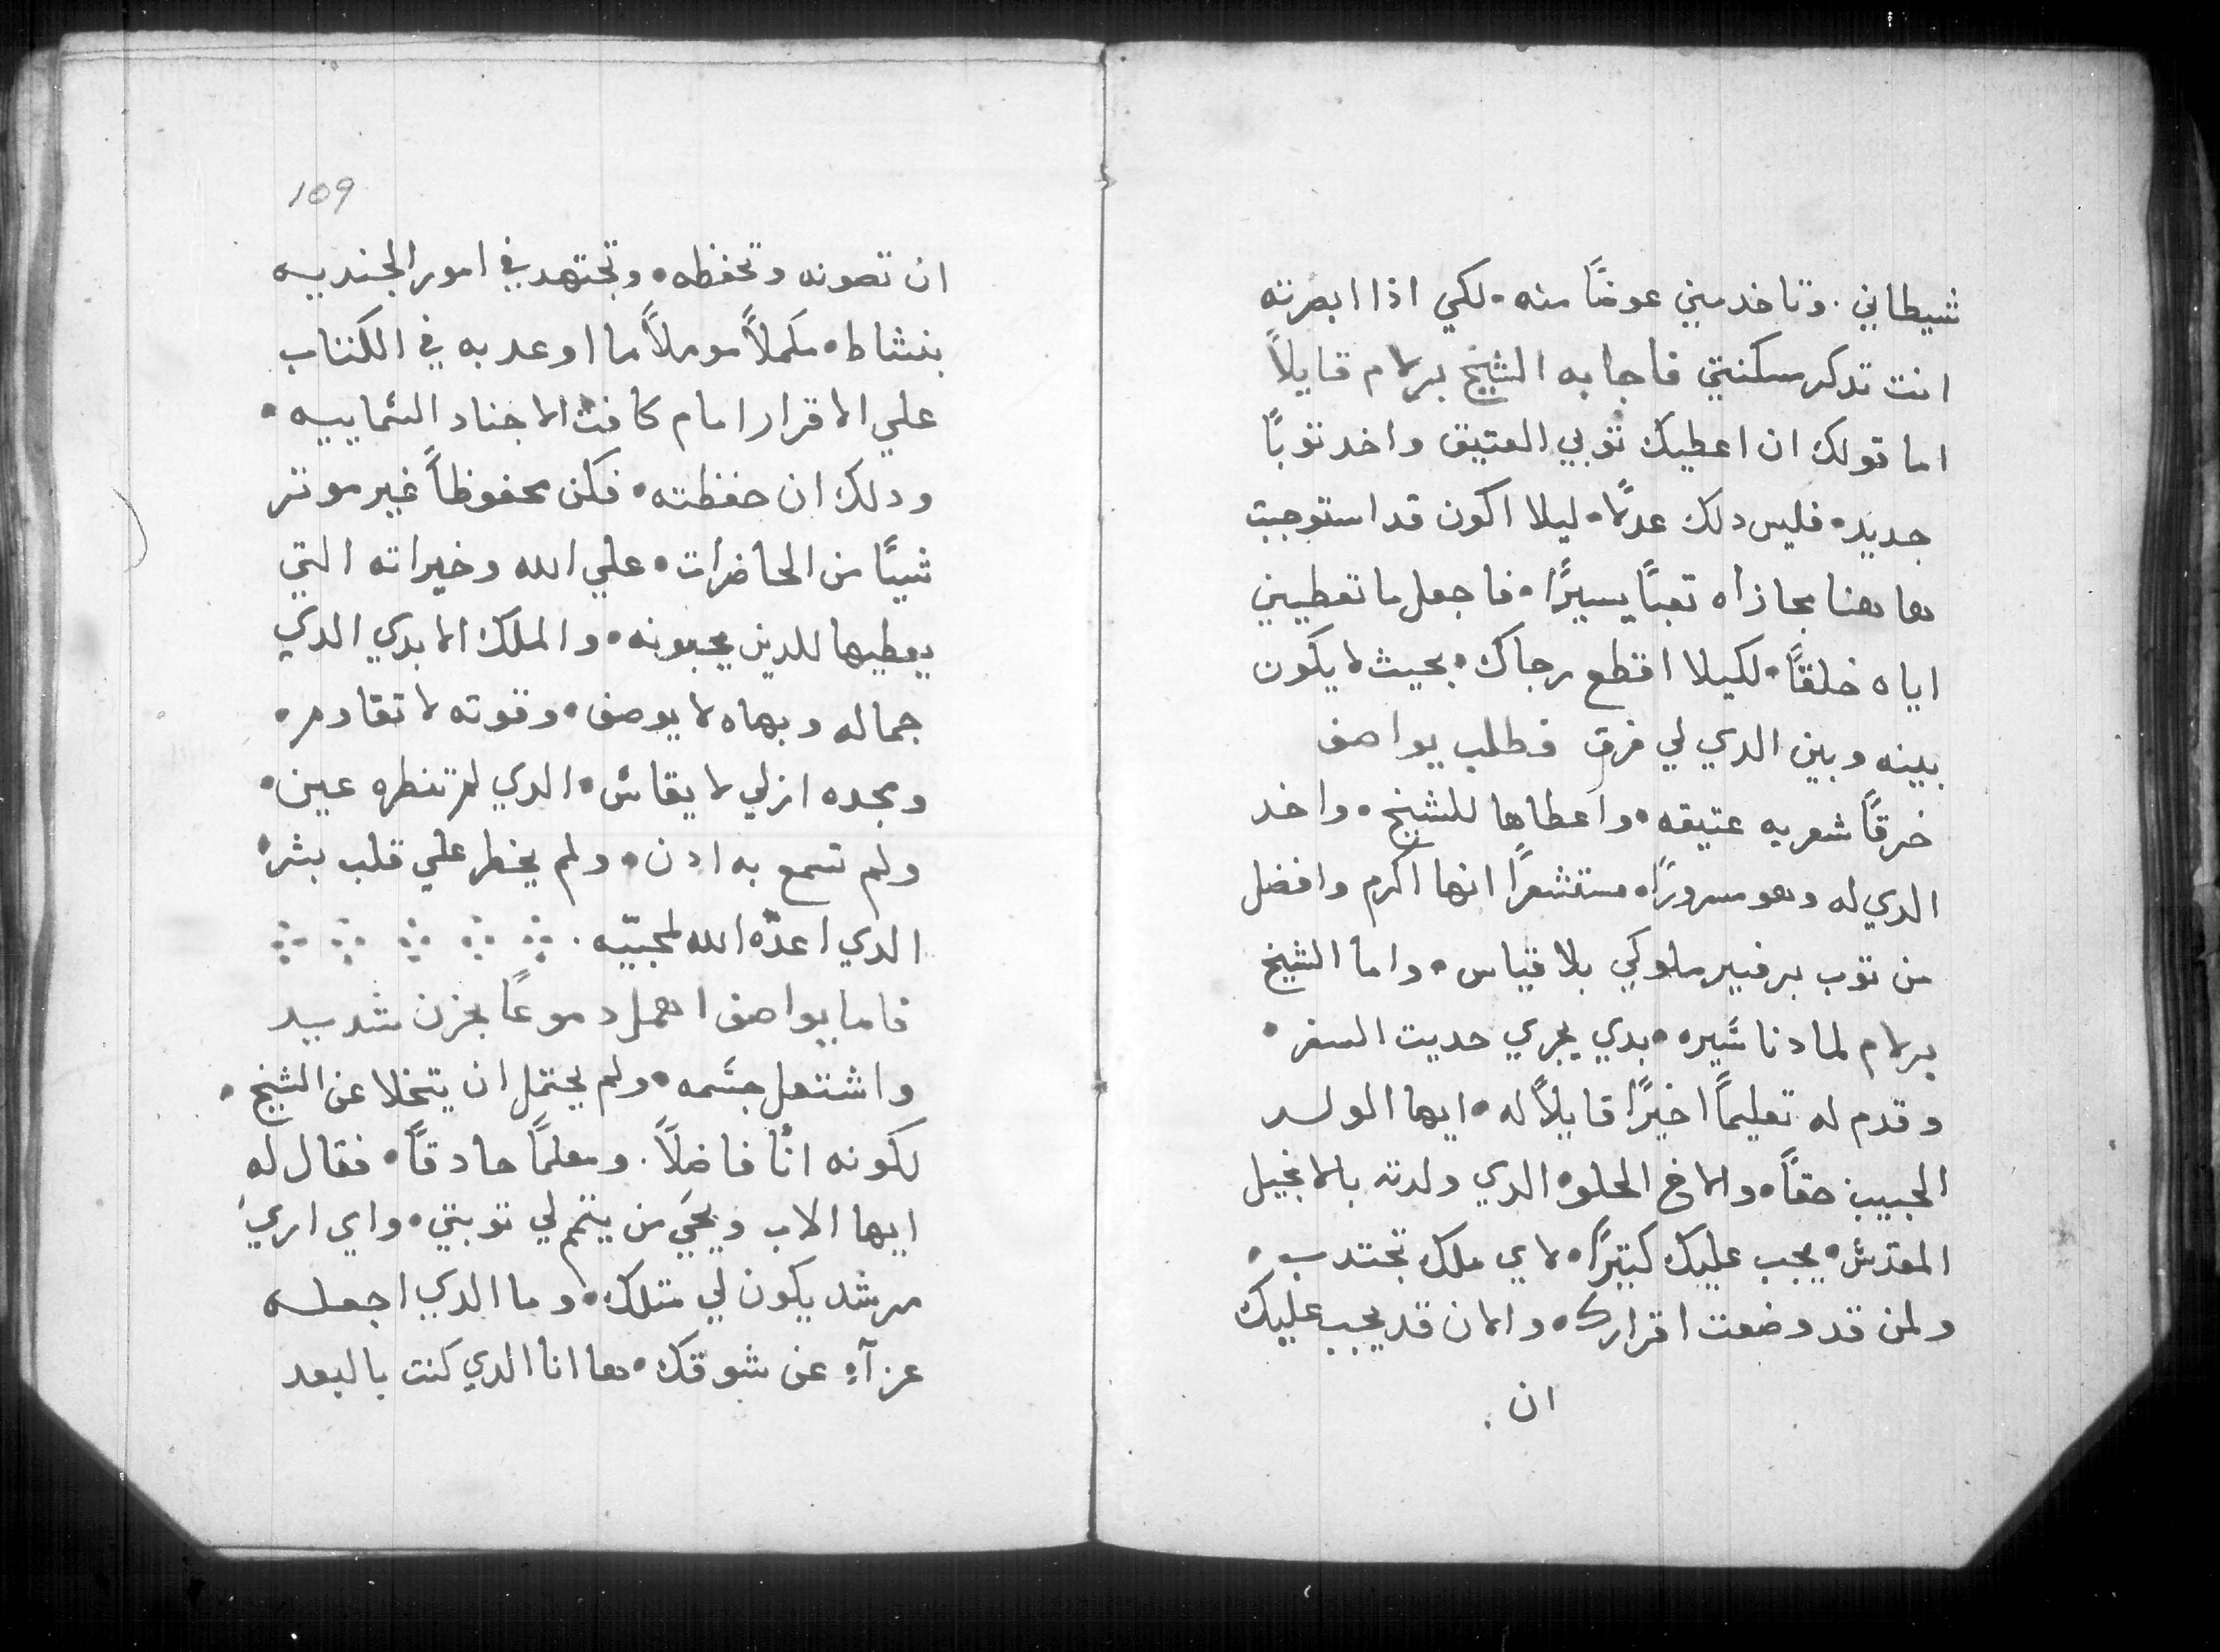 شيطاني. وتاخد مني عوضًا منه. لكي اذا ابصرته
انت تدكر مسكنتي فاجابه الشيخ برلام قايلاً
اما قولك ان اعطيك توبي العتيق واخد توبًا
جديد. فليس دلك عدلًا. ليلا اكون قد استوجبت
هاهنا مجازاه تعبًا يسيرًا. فاجعل ما تعطيني
اياه خلقًا. لكيلا اقطع رجاك. بحيث لا يكون
بينه وبين الدي لي فرق فطلب يواصف
خرقًا شعريه عتيقه. واعطاها للشيخ. واخد
الدي له وهو مسرورًا. مستشعرًا انها اكرم وافضل
من توب برفيير ملوكي بلا قياس. واما الشيخ
برلام لما دنا سَيره. بدي يجري حديت السفر.
وقدم له تعليمًا اخيرًا قايلاً له. ايها الولد
الحبيب حقًا. والاخ الحلو. الدي ولدته بالانجيل
المقدس. يجب عليك كتيرًا. لاي ملك تجتدب.
ولمن قد وضعت اقرارك. والان قد يجب عليك
ان.
109
ان تصونه وتحفظه. وتجتهد في امور الجنديه
بنشاط. مكملاً موملاً ما اوعد به في الكتاب
علي الاقرار امام كافت الاجناد السَماييه.
ودلك ان حفظته. فكن محفوظاً غير موتر
شييًا من الحاضرات. علي الله وخيراته التي
يعطيها للدين يحبونه. والملك الابدي الدي
جماله وبهاه لا يوصف. وقوته لا تقاوم.
ومجده ازلي لا يقاس. الدي لم تنطره عين.
ولم تسمع به ادن. ولم يخطر علي قلب بشر.
الدي اعدّه الله لمحبّيه.
فاما يواصف اهمل دموعًا بحزن شديد
واشتعل جسَمه. ولم يحتمل ان يتخلا عن الشيخ.
لكونه ابًا فاضلاً. ومعلمًا حادقًا. فقال له
ايها الاب ويحَي من يتمم لي توبتي. واي اري
مرشد يكون لي متلك. وما الدي اجعله
عزآءٍ عن شوقك. ها انا الدي كنت بالبعد